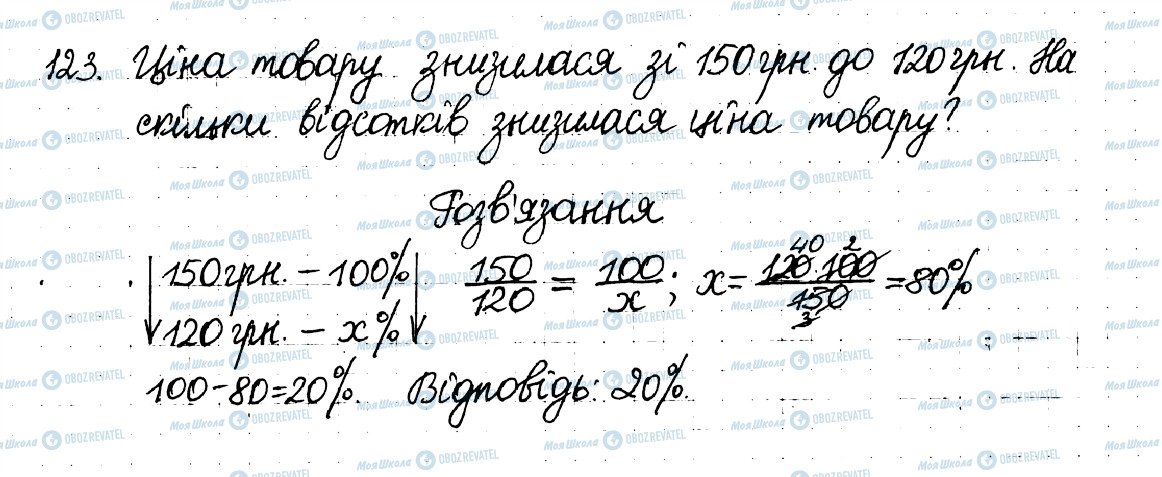 123. Ціна товару знизилася зі 150 грн. до 120 грн. На
скільки відсотків знизилася ціна товару?
Розв'язання
150 грн. – 100% 150/120 = 100/x ; x = 120·100/150 = 80%
40 2 3
120 грн. – x%
100 – 80 = 20%. Відповідь: 20%.
МояШкола OBOZREVATEL